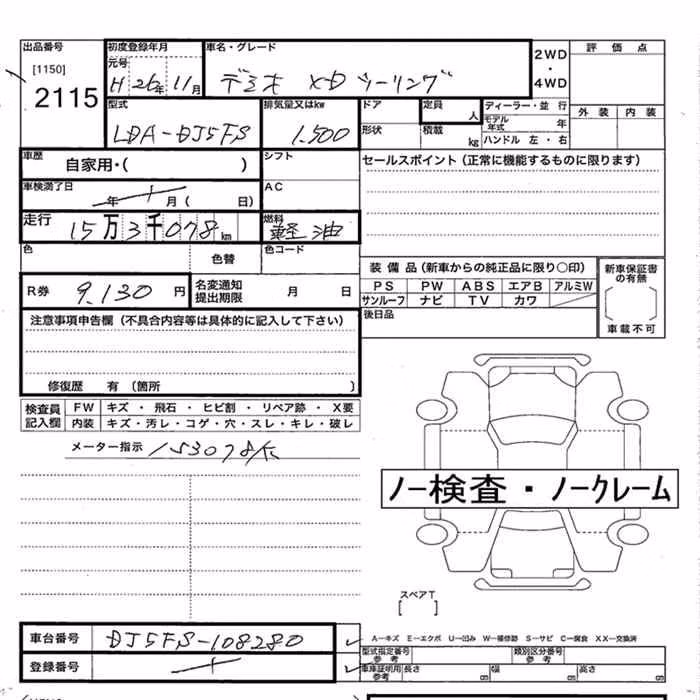 出品番号 初度登録年月 車名・グレード 2WD・4WD 評価点
[1150] 元号
2115 H 26年 11月 デミオ XD ツーリング
型式 排気量又はkw ドア 定員 人 ディーラー・並行 外装 内装
LDA-DJ5FS 1.500 形状 積載 kg モデル年式 年
ハンドル 左・右
車歴 自家用・( ) シフト セールスポイント(正常に機能するものに限ります)
車検満了日 年 月( 日) AC
走行 15万3千078km 燃料 軽油
色 色替 色コード
装備品(新車からの純正品に限り○印) 新車保証書の有無
R券 9.130円 名変通知提出期限 月 日 PS PW ABS エアB アルミW
サンルーフ ナビ TV カワ
注意事項申告欄(不具合内容等は具体的に記入して下さい) 後日品 車載不可
修復歴 有 〔箇所 〕
検査員記入欄 FW キズ・飛石・ヒビ割・リペア跡・X要
内装 キズ・汚レ・コゲ・穴・スレ・キレ・破レ
メーター指示 153078K
ノー検査・ノークレーム
スペアT
[ ]
車台番号 DJ5FS-108280 A―キズ E―エクボ U―凹み W―補修跡 S―サビ C―腐食 XX―交換済
型式指定番号 参考 類別区分番号 参考
登録番号 車庫証明用参考 長さ cm 幅 cm 高さ cm